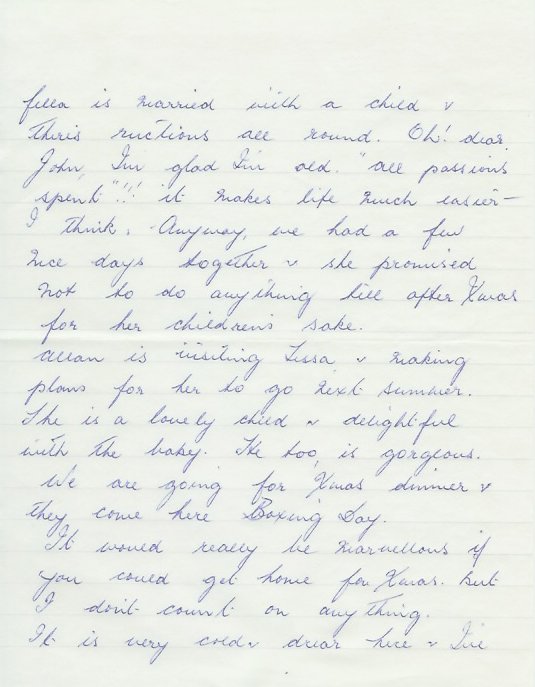 fella is married with a child &
theris ructions all round. Oh! dear,
John, I'm glad I'm old. "all passions
spent"!!! it makes life much easier –
I think. Anyway, we had a few
nice days together & she promised
not to do anything till after Xmas
for her children's sake.
Allan is visiting Lissa & making
plans for her to go next summer.
She is a lovely child & delightful
with the baby. He too, is gorgeous.
We are going for Xmas dinner &
they come here Boxing Day.
It would really be marvellous if
you could get home for Xmas. But
I don't count on anything.
It is very cold & drear here & I've